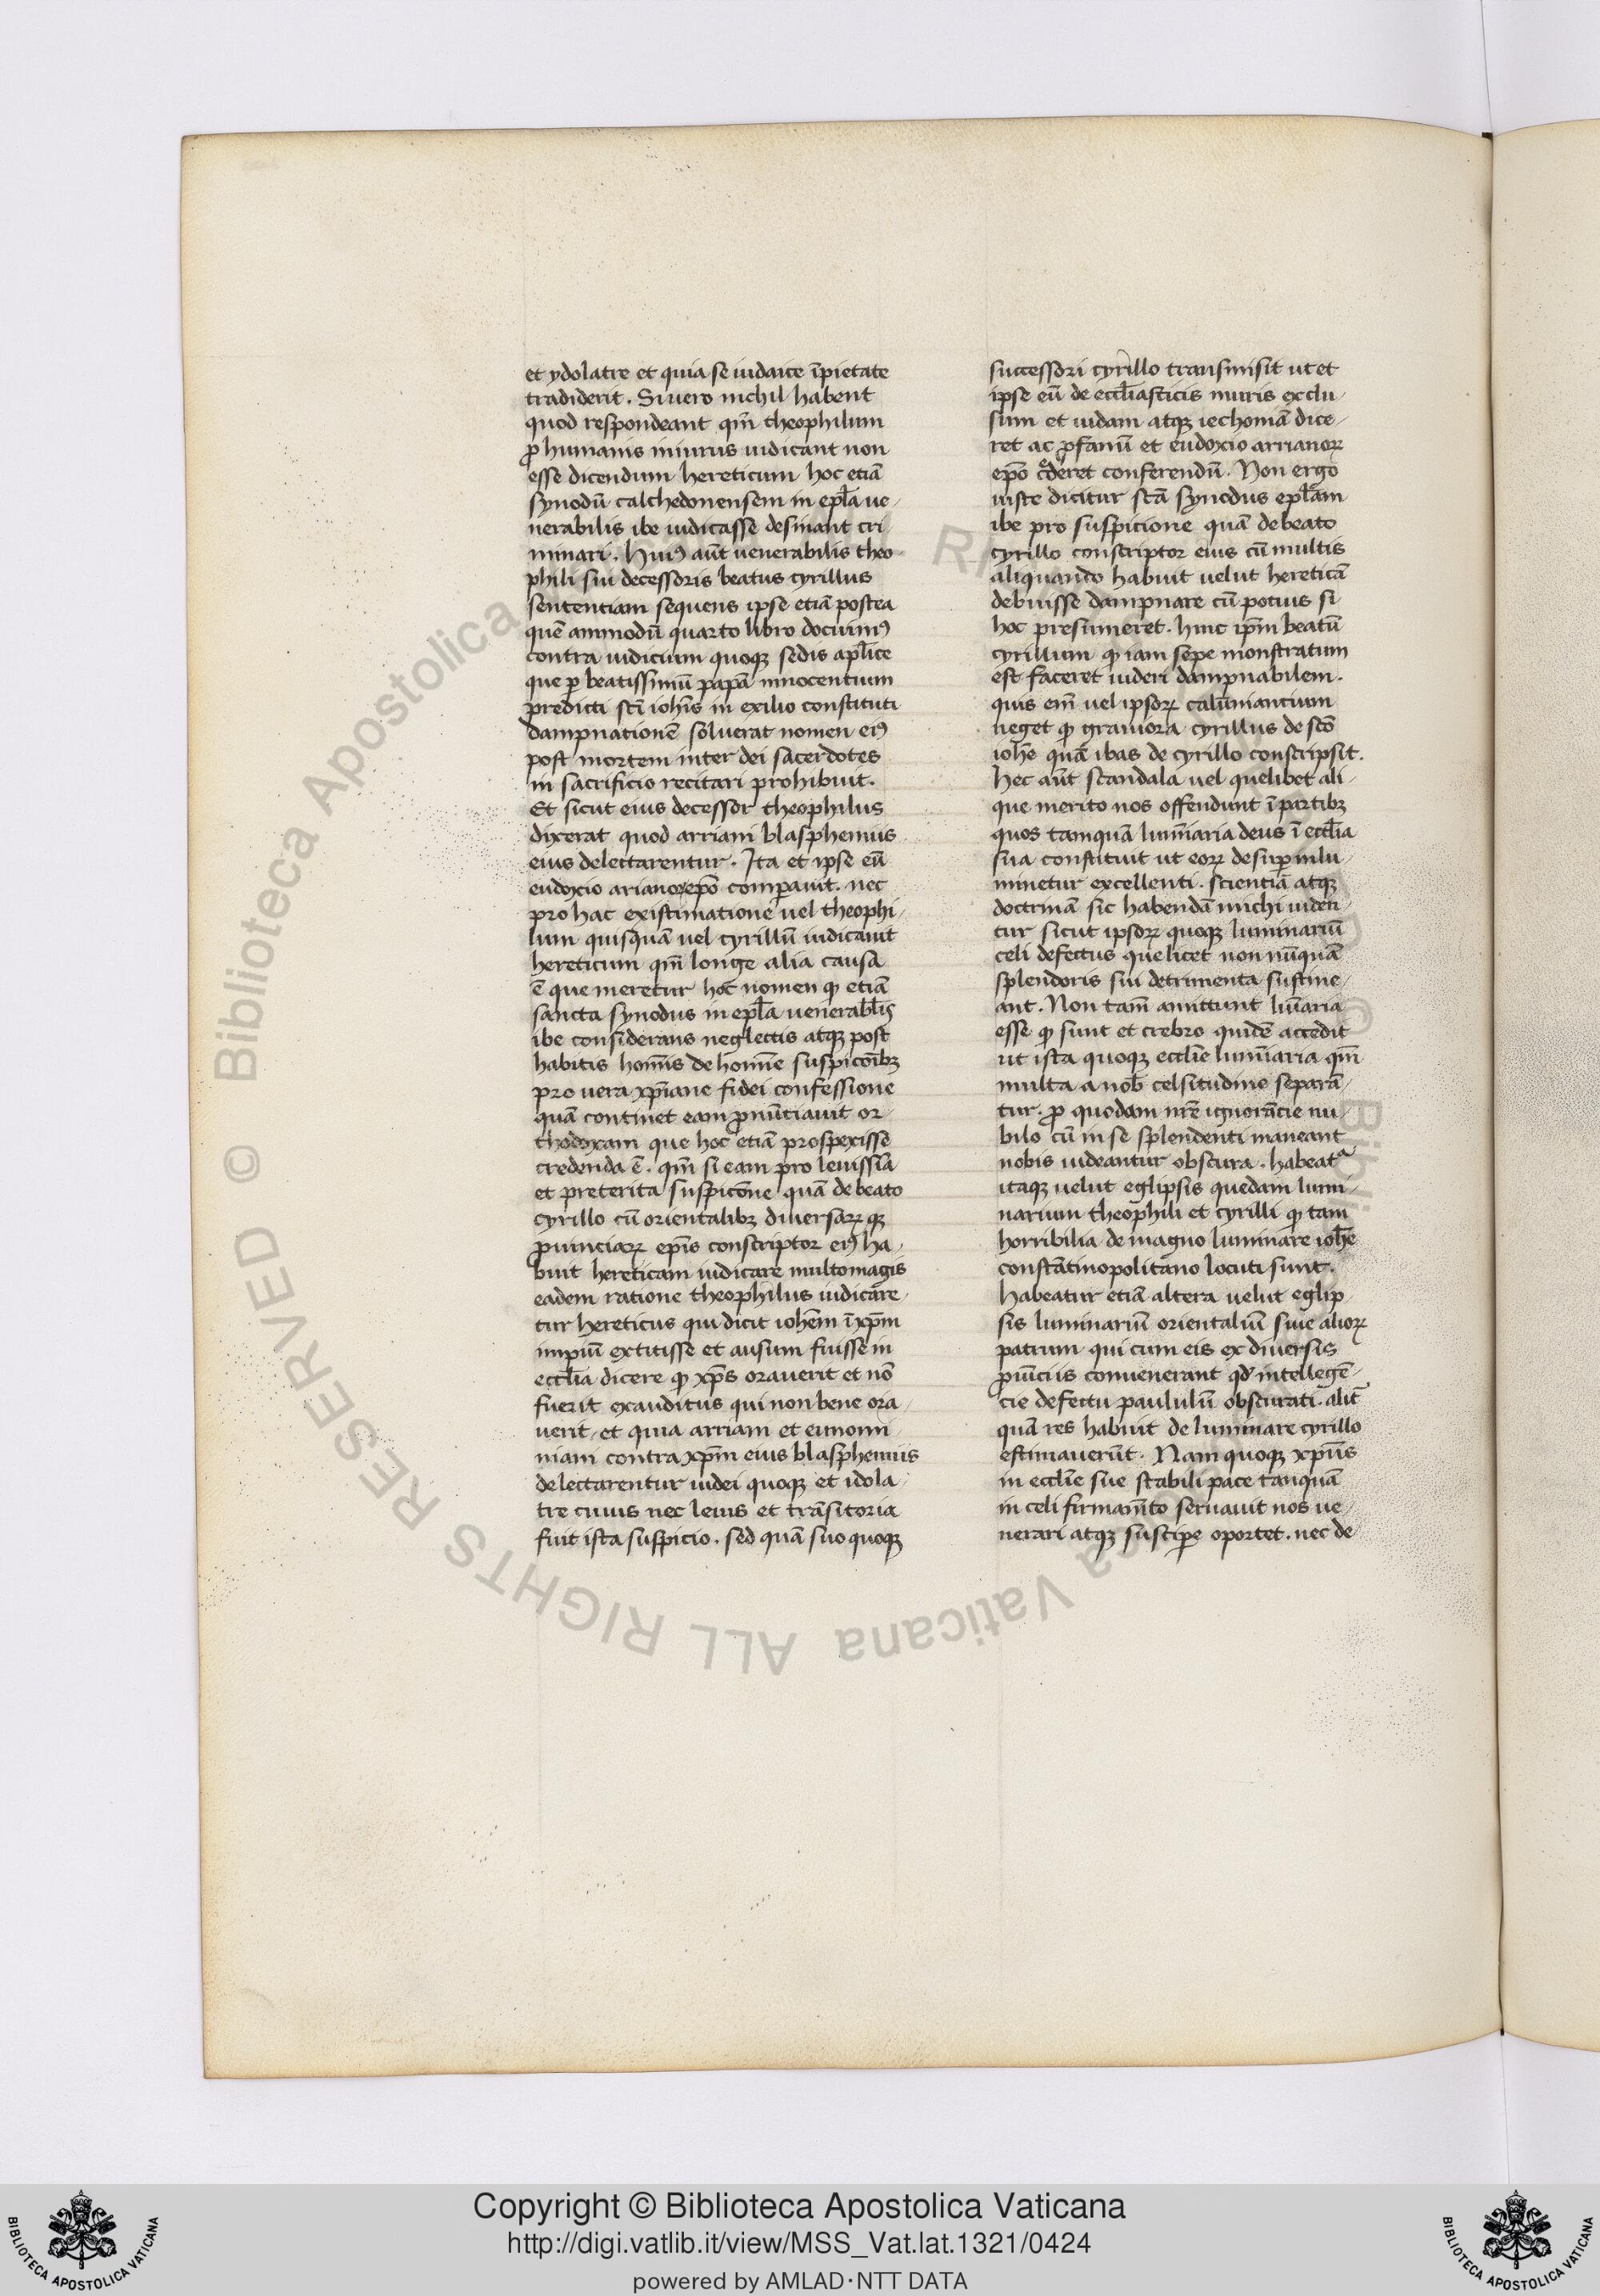 et ydolatre et quia se iudaice īpietate
tradiderit. Si uero nichil habent
quod respondeant qm̄ theophilum
ꝓ humanis iniuriis iudicant non
esse dicendum hereticum hoc etiā
synodū calchedonensem in epl̄a ue-
nerabilis ibe iudicasse desinant cri
minari. Huiꝰ aūt uenerabilis theo-
phili sui decessoris beatus cyrillus
sententiam sequens ipse etiā postea
quē ammodū quarto libro docuimꝰ
contra iudicium quoqꝫ sedis apl̄ice
que ꝑ beatissimū papā innocentium
predicti sc̄i ioh̄is in exilio constituti
dampnationē soluerat nomen eiꝰ
post mortem inter dei sacerdotes
in sacrificio recitari prohibuit.
Et sicut eius decessor theophilus
dixerat quod arriani blasphemiis
eius delectarentur. Ita et ipse eū
eudoxio arianoꝝ ep̄o comparauit. nec
pro hac existimatione uel theophi-
lum quisquā uel cyrillū iudicauit
hereticum qm̄ longe alia causa
ē que meretur hoc nomen ꝙ etiā
sancta synodus in epl̄a uenerabl̄is
ibe considerans neglectis atqꝫ post
habitis homīs de homīe suspicōibꝫ
pro uera xp̄iane fidei confessione
quā continet eam ꝓnūtiauit or-
thodoxam que hoc etiā prospexisse
credenda ē. qm̄ si eam pro leuissīa
et preterita suspicōne quā de beato
cyrillo cū orientalibꝫ diuersaꝝ qꝫ
ꝓuinciaꝝ ep̄is conscriptor eiꝰ ha-
buit hereticam iudicare multo magis
eadem ratione theophilus iudicare-
tur hereticus qui dicit ioh̄em ī xp̄m
impiū extitisse et ausum fuisse in
eccl̄ia dicere ꝙ xp̄s orauerit et nō
fuerit exauditus qui non bene ora-
uerit, et quia arriani et eunomi-
niani contra xp̄m eius blasphemiis
delectarentur iudei quoqꝫ et idola-
tre cuius nec leuis et trāsitoria
fuit ista suspicio. sed quā suo quoqꝫ
successori cyrillo transmisit ut et
ipse eū de eccl̄iasticis muris exclu-
sum et iudam atqꝫ iechoniā dice-
ret ac ꝓfanū et eudoxio arrianoꝝ
ep̄o cederet conferendū. Non ergo
iuste dicitur sc̄a synodus epl̄am
ibe pro suspicione quā de beato
cyrillo conscriptor eius cū multis
aliquando habuit uelut hereticā
debuisse dampnare cū potius si
hoc presumeret. hinc ip̄m beatū
cyrillum ꝙ iam sepe monstratum
est faceret uideri dampnabilem.
quis em̄ uel ipsoꝝ calūniantium
neget ꝙ grauiora cyrillus de sc̄o
ioh̄e quā ibas de cyrillo conscripsit.
Hec aūt scandala uel quelibet ali-
que merito nos offendunt ī partibꝫ
quos tamquā lumīaria deus ī eccl̄ia
sua constituit ut eoꝝ desuꝑ inlu-
minetur excellenti. scientiā atqꝫ
doctrinā sic habendā michi uiden-
tur sicut ipsoꝝ quoqꝫ luminariū
celi defectus que licet non nūquā
splendoris sui detrimenta sustine-
ant. Non tam̄ amittunt lūaria
esse ꝙ sunt et crebro quidē accedit
ut ista quoqꝫ eccl̄ie lumīaria qm̄
multa a nob̄ celsitudine separā-
tur. ꝓ quodam nr̄e ignorācie nu-
bilo cū in se splendenti maneant
nobis uideantur obscura. habeatᵃ
itaqꝫ uelut eglipsis quedam lumi-
narium theophili et cyrilli ꝙ tam
horribilia de magno luminare ioh̄e
constātinopolitano locuti sunt.
Habeatur etiā altera uelut eglip-
sis luminariū orientaliū siue alioꝝ
patrum qui cum eis ex diuersis
ꝓuīciis conuenerant qd̄ intellegē-
cie defectu paululū obscurati alit̄
quā res habuit de luminare cyrillo
estimauerūt. Nam quoqꝫ xp̄us
in eccl̄ie sue stabili pace tanquā
in celi firmam̄to seruauit nos ue-
nerari atqꝫ susciꝑe oportet. nec de
Copyright © Biblioteca Apostolica Vaticana
http://digi.vatlib.it/view/MSS_Vat.lat.1321/0424
powered by AMLAD·NTT DATA